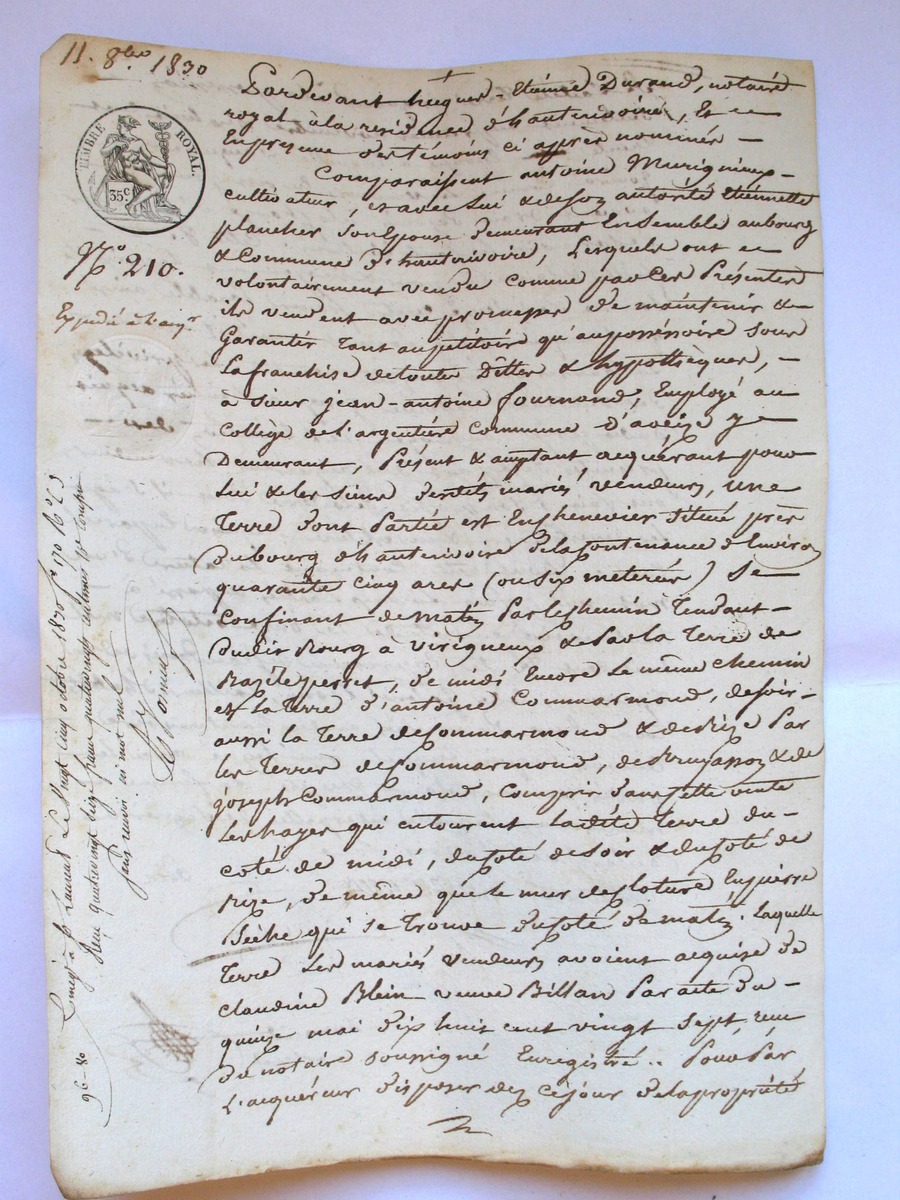 11. 8bre 1830
TIMBRE ROYAL.
35c
No. 210.
Expédié à l'acqr
Pardevant Etienne Durand, notaire
royal à la residence d'hauterivoire, Et en
En presence des témoins ci après nommés –
Comparaissent antoine Murigneux –
cultivateur, et avec Lui & de son autorité Etiennette
plancher son Epouse demeurant Ensemble au bourg
& Commune d'hauterivoire, Lesquels ont en
volontairement vendu comme par Ces Présentes
ils vendent avec promesse de maintenir &
Garantir tant au petitoire qu'au possessoire sous
La franchise de toutes Dettes & hypothèques, –
à sieur jean-antoine fournand, Employé au
Collège de l'argentière Commune d'aveize y
Demeurant, Présent & acceptant acquérant pour
Lui & les siens desdits mariés vendeurs, Une
Terre dont Partie est En chenevier située près
du bourg d'hauterivoire de la Contenance d'Environ
quarante cinq ares (ou six meterées) Se
Confinant de matin Par le chemin Tendant –
dudit Bourg à virigneux & Par la Terre de
Bazile perret, de midi Encore Le même chemin
et La Terre d'antoine Commarmond, de soir –
aussi la Terre de Commarmond & de Bize Par
les Terres de Commarmond, de & de
joseph Commarmond, Compris dans cette vente
Les hayes qui entourent Ladite Terre du –
coté de midi, du coté de soir & du coté de
Bize, de même que le mur de cloture En pierre
Sèche qui se Trouve du coté de matin. Laquelle
Terre Les mariés vendeurs avoient acquise de
claudine Blein veuve Billan Par acte du –
quinze mai dix huit cent vingt sept, reçu
du notaire soussigné Enregistré. Pour Par
L'acquéreur disposer dez Ce jour de la propriété
Enregé à St Laurent Le vingt cinq octobre 1830 fo 170
Reçu quatrevingt seize francs quatrevingts centimes 10e compris
sans renvoi ni mot nul
96-80